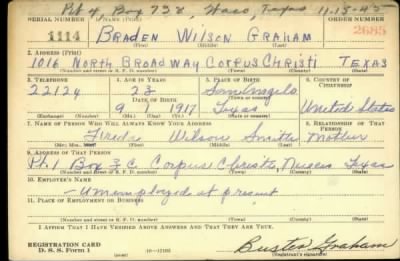 Rt 4, Box 738, Waco, Texas 11-15-45
SERIAL NUMBER 1. NAME (Print) ORDER NUMBER
1114 BRADEN WILSON GRAHAM 2685
(First) (Middle) (Last)
2. ADDRESS (Print)
1016 NORTH BROADWAY CORPUS CHRISTI TEXAS
(Number and street or R. F. D. number) (Town) (County) (State)
3. TELEPHONE 4. AGE IN YEARS 5. PLACE OF BIRTH 6. COUNTRY OF CITIZENSHIP
22124 23 San Angelo
DATE OF BIRTH (Town or county)
9 1917 Texas United States
(Exchange) (Number) (Mo.) (Day) (Yr.) (State or country)
7. NAME OF PERSON WHO WILL ALWAYS KNOW YOUR ADDRESS 8. RELATIONSHIP OF THAT PERSON
Wilson Smith Mother
(Mr., Mrs., Miss) (First) (Middle) (Last)
9. ADDRESS OF THAT PERSON
Rt. 1 Box 3C Corpus Christi, Nueces Texas
(Number and street or R. F. D. number) (Town) (County) (State)
10. EMPLOYER'S NAME
- Unemployed at present
11. PLACE OF EMPLOYMENT OR BUSINESS
(Number and street or R. F. D. number) (Town) (County) (State)
I AFFIRM THAT I HAVE VERIFIED ABOVE ANSWERS AND THAT THEY ARE TRUE.
REGISTRATION CARD
D. S. S. Form 1 Buster Graham
(Registrant's signature)